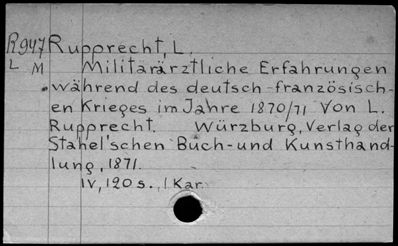 R947 Rupprecht, L.
L M Militärärztliche Erfahrungen
während des deutsch-französisch-
en Krieges im Jahre 1870/71 Von L.
Rupprecht. Würzburg, Verlag der
Stahel'schen Buch-und Kunsthand-
lung, 1871.
IV, 120 s., 1 Kar.